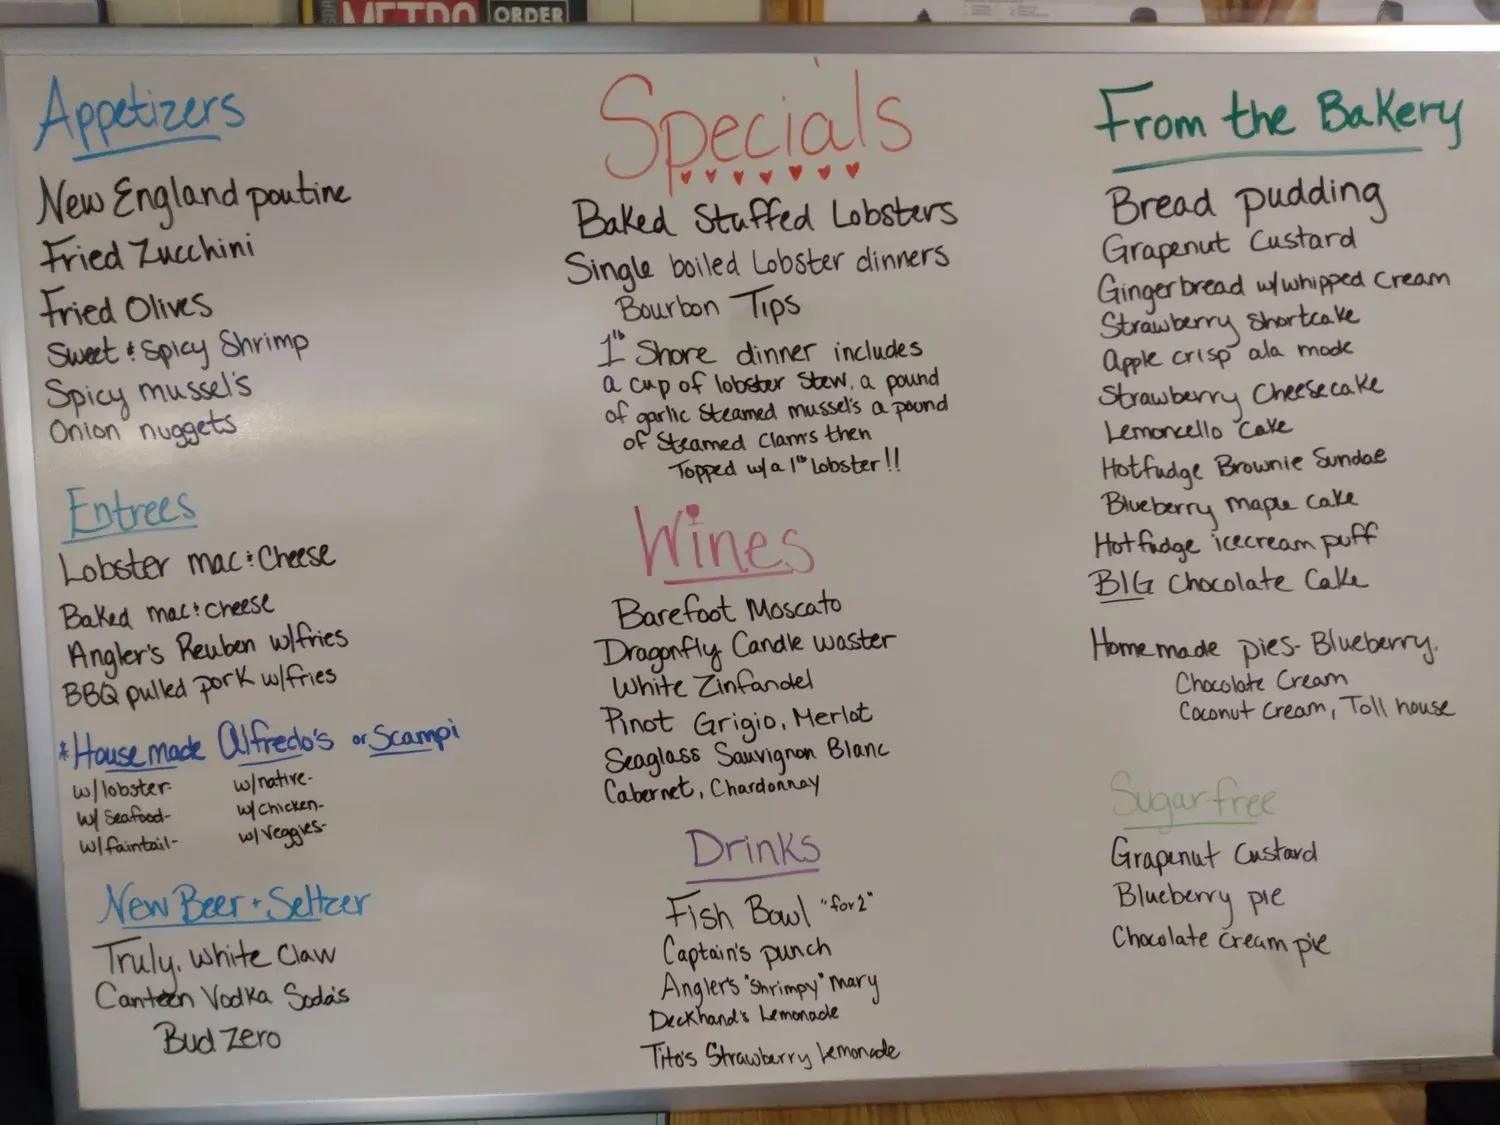 METRO
ORDER
Appetizers
New England poutine
Fried Zucchini
Fried Olives
Sweet & Spicy Shrimp
Spicy mussel's
Onion nuggets
Entrees
Lobster mac & Cheese
Baked mac & cheese
Angler's Reuben w/fries
BBQ pulled pork w/fries
*Housemade Alfredo's or Scampi
w/lobster- w/native-
w/ Seafood- w/ chicken-
w/faintail- w/veggies-
New Beer + Seltzer
Truly, White Claw
Canteen Vodka Soda's
Bud Zero
Specials
Baked Stuffed Lobsters
Single boiled Lobster dinners
Bourbon Tips
1lb Shore dinner includes
a cup of lobster Stew, a pound
of garlic Steamed mussel's a pound
of Steamed Clam's then
Topped w/a 1lb Lobster!!
Wines
Barefoot Moscato
Dragonfly Candle waster
White Zinfandel
Pinot Grigio, Merlot
Seaglass Sauvignon Blanc
Cabernet, Chardonnay
Drinks
Fish Bowl "for 2"
Captain's punch
Angler's "Shrimpy" mary
Deckhand's Lemonade
Tito's Strawberry Lemonade
From the Bakery
Bread pudding
Grapenut Custard
Gingerbread w/whipped Cream
Strawberry Shortcake
Apple crisp ala mode
Strawberry Cheesecake
Lemoncello Cake
Hotfudge Brownie Sundae
Blueberry maple cake
Hotfudge icecream puff
BIG Chocolate Cake
Homemade pies- Blueberry,
Chocolate Cream
Coconut Cream, Toll house
Sugar free
Grapenut Custard
Blueberry pie
Chocolate Cream pie